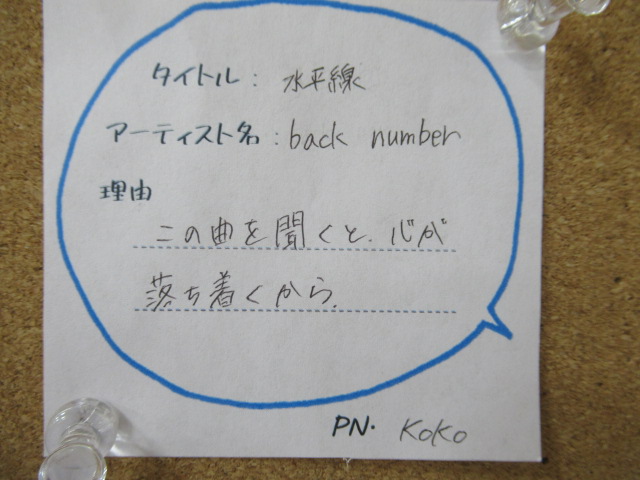 タイトル : 水平線
アーティスト名 : back number
理由
この曲を聞くと、心が
落ち着くから。
PN. KoKo